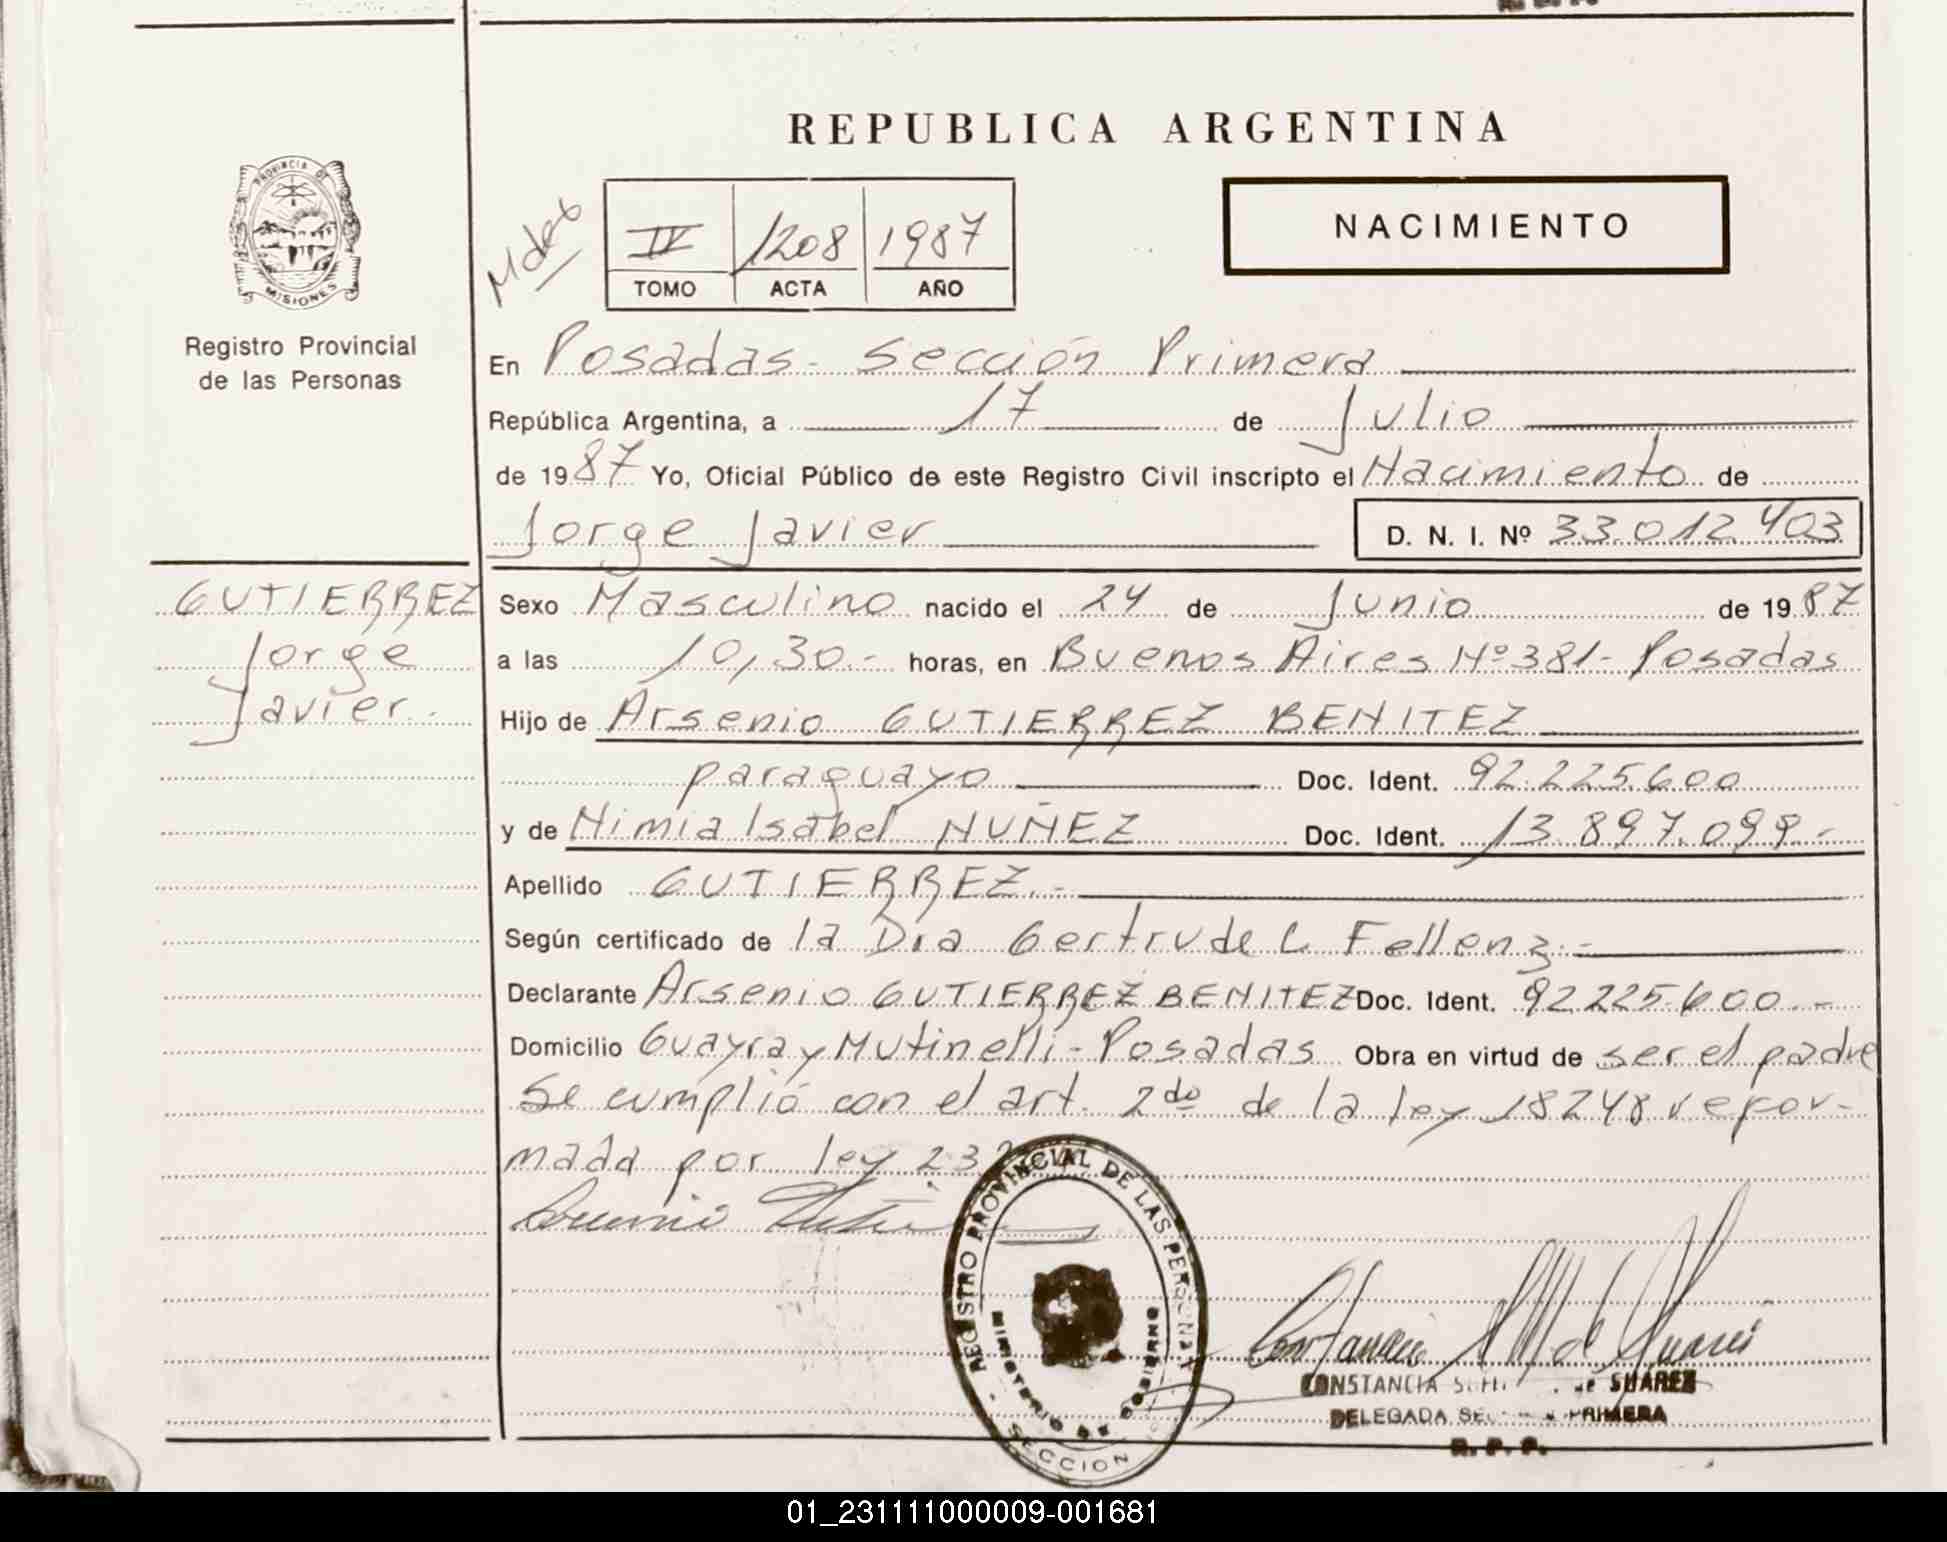 REPUBLICA ARGENTINA
PROVINCIA DE
MISIONES
Registro Provincial
de las Personas
IV 1208 1987
TOMO ACTA AÑO
NACIMIENTO
En Posadas - Sección Primera
República Argentina, a 17 de Julio
de 1987 Yo, Oficial Público de este Registro Civil inscripto el Nacimiento de
Jorge Javier D. N. I. Nº 33.012.403
GUTIERREZ
Jorge
Javier.-
Sexo Masculino nacido el 24 de Junio de 1987
a las 10,30.- horas, en Buenos Aires Nº 381- Posadas
Hijo de Arsenio GUTIERREZ BENITEZ
paraguayo Doc. Ident. 92.225.600
y de Nimia Isabel NUÑEZ Doc. Ident. 13.897.099.-
Apellido GUTIERREZ.-
Según certificado de la Dra Gertrude L Fellenz.-
Declarante Arsenio GUTIERREZ BENITEZ Doc. Ident. 92.225.600.-
Domicilio Guayra y Mutinelli - Posadas Obra en virtud de ser el padre
Se cumplió con el art. 2do de la ley 18248 refor-
mada por ley
REGISTRO PROVINCIAL DE LAS PERSONAS
MINISTERIO DE GOBIERNO
SECCION
CONSTANCIA de SUAREZ
DELEGADA PRIMERA
R. P. P.
01_231111000009-001681